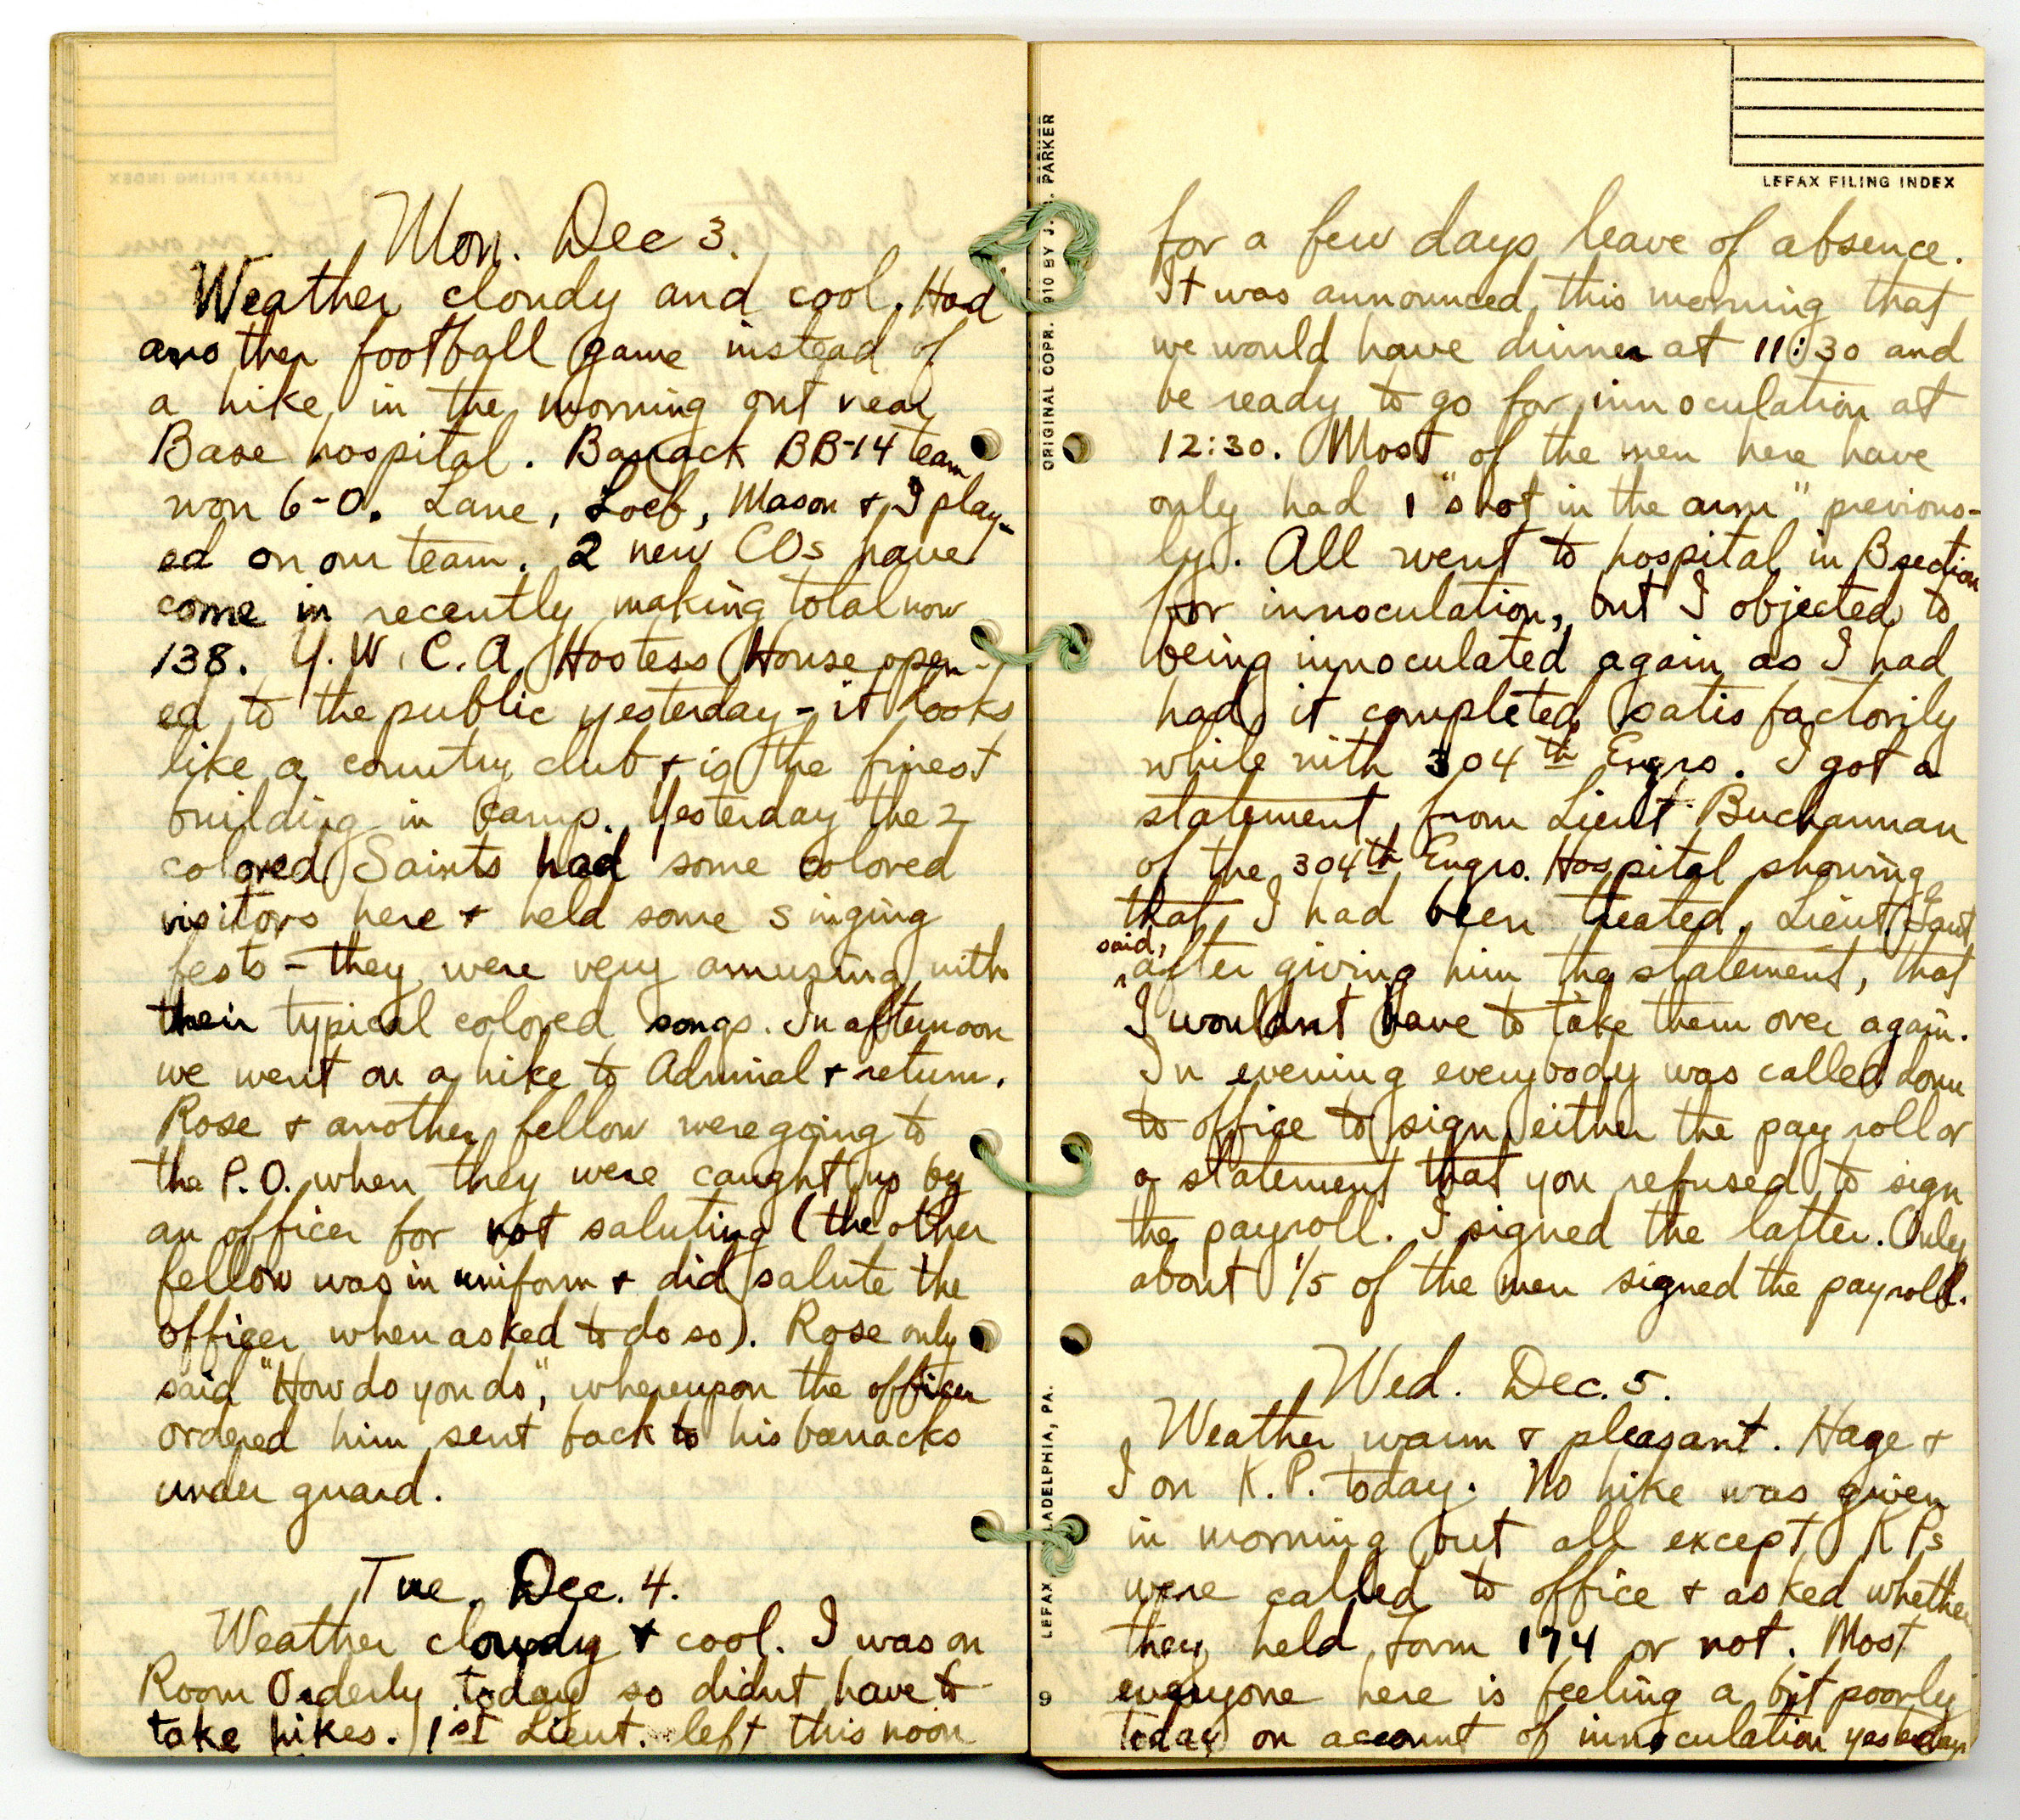 Mon. Dec 3.
Weather cloudy and cool. Had
another football game instead of
a hike in the morning out near
Base hospital. Barrack BB-14 team
won 6-0. Lane, Loeb, Mason + I play-
ed on our team. 2 new COs have
come in recently making total now
138. Y.W.C.A. Hostess House open-
ed to the public yesterday - it looks
like a country club + is the finest
building in camp. Yesterday the 2
colored Saints had some colored
visitors here + held some singing
fests - they were very amusing with
their typical colored songs. In afternoon
we went on a hike to Admiral + return.
Rose + another fellow were going to
the P.O. when they were caught up by
an officer for not saluting (the other
fellow was in uniform + did salute the
officer when asked to do so). Rose only
said "How do you do", whereupon the officer
ordered him sent back to his barracks
under guard.
Tue. Dec. 4.
Weather cloudy + cool. I was on
Room Orderly today so didnt have to
take hikes. 1st Lieut. left this noon
LEFAX FILING INDEX
for a few days leave of absence.
It was announced this morning that
we would have dinner at 11:30 and
be ready to go for innoculation at
12:30. Most of the men here have
only had 1 "shot in the arm" previous-
ly. All went to hospital in B section
for innoculation, but I objected to
being innoculated again as I had
had it completed satisfactorily
while with 304th Engrs. I got a
statement from Lieut Buchannan
of the 304th Engrs. Hospital showing
that I had been treated. Lieut.
said, after giving him the statement, that
I wouldnt have to take them over again.
In evening everybody was called down
to office to sign either the pay roll or
a statement that you refused to sign
the payroll. I signed the latter. Only
about 1/5 of the men signed the payroll.
Wed. Dec. 5.
Weather warm + pleasant. Hage +
I on K.P. today. No hike was given
in morning but all except KPs
were called to office + asked whether
they held form 174 or not. Most
everyone here is feeling a bit poorly
today on account of innoculation yesterday
ORIGINAL COPR. 1910 BY J. PARKER
LEFAX ADELPHIA, PA.
9